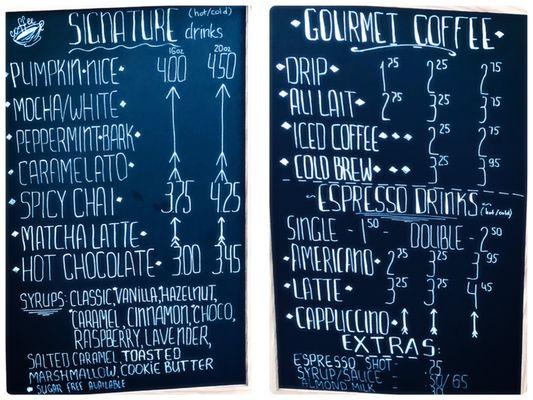 coffee
SIGNATURE (hot/cold) drinks
16oz 20oz
PUMPKIN NICE 4.00 4.50
MOCHA/WHITE
PEPPERMINT BARK
CARAMELATO
SPICY CHAI 3.75 4.25
MATCHA LATTE
HOT CHOCOLATE 3.00 3.45
SYRUPS: CLASSIC, VANILLA, HAZELNUT,
CARAMEL, CINNAMON, CHOCO,
RASPBERRY, LAVENDER,
SALTED CARAMEL, TOASTED
MARSHMALLOW, COOKIE BUTTER
SUGAR FREE AVAILABLE
GOURMET COFFEE
DRIP 1 75 2 25 2 75
AU LAIT 2 75 3 25 3 75
ICED COFFEE 2 25 2 75
COLD BREW 3 25 3 95
ESPRESSO DRINKS (hot/cold)
SINGLE - 1 50 - DOUBLE - 2 50
AMERICANO 2 75 3 25 3 95
LATTE 3 25 3 75 4 45
CAPPUCCINO
EXTRAS:
ESPRESSO SHOT - 25
SYRUP/SAUCE - 50/65
ALMOND MILK - 50